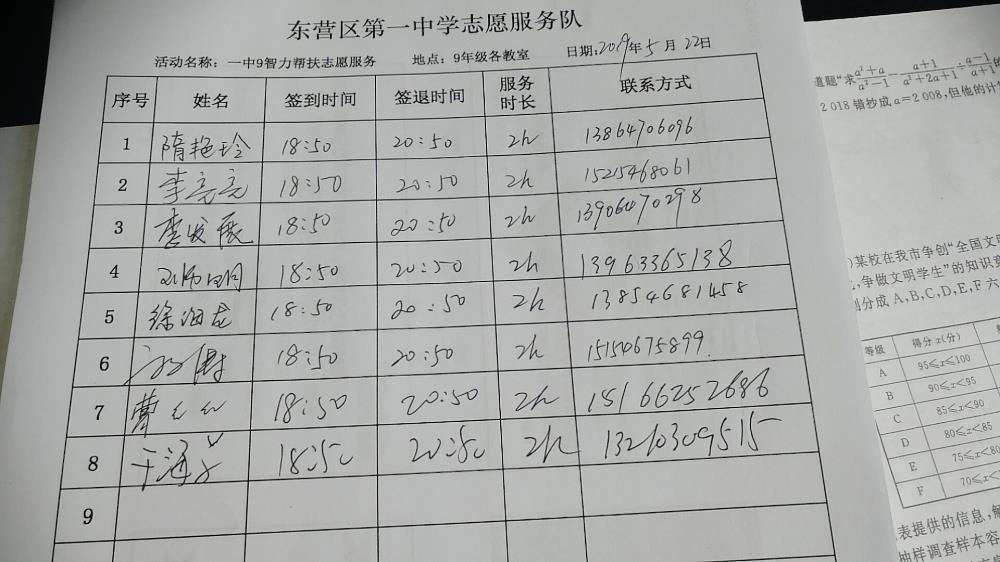 东营区第一中学志愿服务队
活动名称：一中9智力帮扶志愿服务 地点：9年级各教室 日期:2019年5月22日
序号 姓名 签到时间 签退时间 服务时长 联系方式
1 隋艳玲 18:50 20:50 2h 13864706096
2 李亮亮 18:50 20:50 2h 1525468061
3 李发展 18:50 20:50 2h 13906470298
4 18:50 20:50 2h 13963365138
5 徐海龙 18:50 20:50 2h 13854681458
6 18:50 20:50 2h 15154675899
7 曹 18:50 20:50 2h 15166252686
8 18:50 20:50 2h 13210309515
9
道题“求a²+a/a²-1-a+1/a²+2a+1÷a-1/a+1的
2 018错抄成a=2 008,但他的计
)某校在我市争创“全国文明
,争做文明学生”的知识竞
分成A,B,C,D,E,F六
等级 得分x(分)
A 95≤x≤100
B 90≤x<95
C 85≤x<90
D 80≤x<85
E 75≤x<80
F 70≤x<
表提供的信息,解
抽样调查样本容